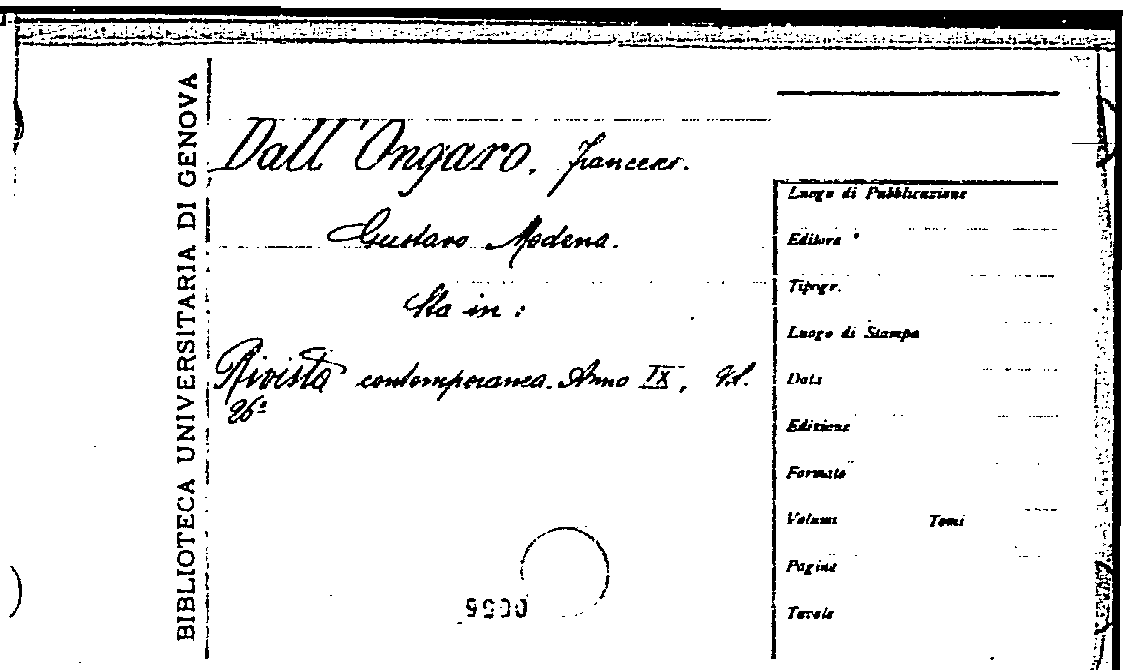 BIBLIOTECA UNIVERSITARIA DI GENOVA
Dall'Ongaro. Francesco.
Gustavo Modena.
Sta in:
Rivista contemporanea. Anno IX, Vol.
26º
Luogo di Pubblicazione
Editore
Tipogr.
Luogo di Stampa
Data
Edizione
Formato
Volumi Tomi
Pagine
Tavole